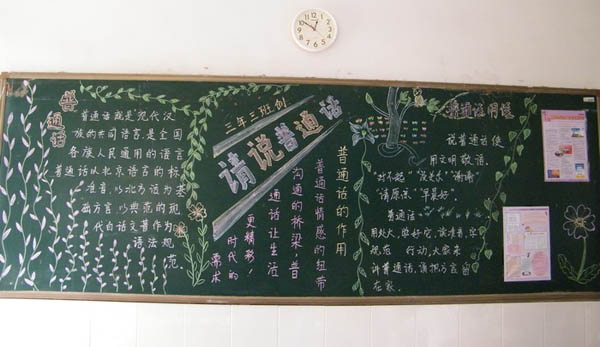 普通话
普通话就是现代汉
族的共同语言，是全国
各族人民通用的语言
普通话以北京语言的标
准音，以北方话为基
础方言，以典范的现
代白话文著作为
语法规
范
三年三班创
请说普通话
普通话的作用
普通话情感的纽带
沟通的桥梁，普
通话让生活
更精彩！
时代的
需求
普通话用语
说普通话使
用文明敬语。
“对不起” “没关系” “谢谢”
“请原谅” “早晨好”。
普通话
用处大，学好它，
规范 行动，大家来
讲普通话，请把方言留
在家.